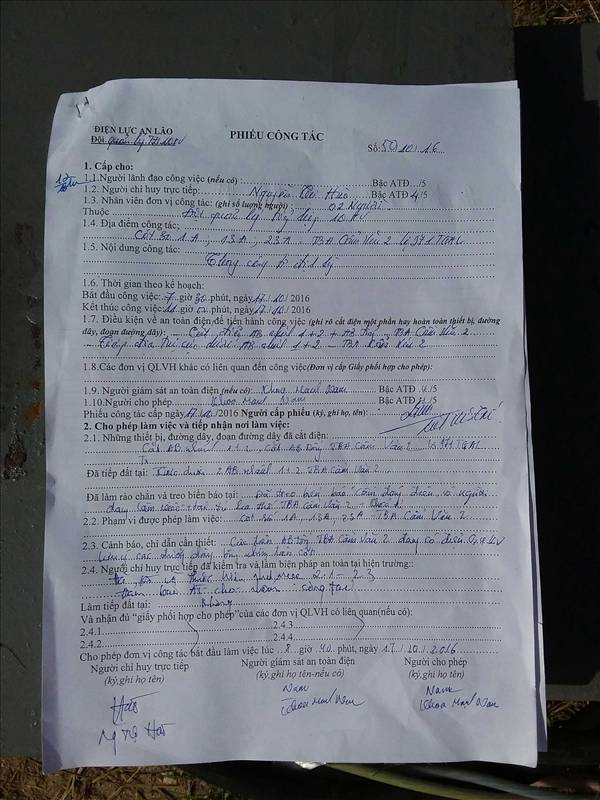 ĐIỆN LỰC AN LÃO
PHIẾU CÔNG TÁC
Đội quản lý TH 10kV
Số: 50/10/16
1. Cấp cho:
1.1.Người lãnh đạo công việc (nếu có) : Bậc ATĐ /5
1.2. Người chỉ huy trực tiếp: Nguyễn Hào Bậc ATĐ 4/5
1.3. Nhân viên đơn vị công tác: (ghi số lượng người) : 02 Người
Thuộc Đội quản lý tổng hợp 10 kV
1.4. Địa điểm công tác:
Cột số 1A, 13A, 23A - TBA Cẩm Văn 2 lộ 971 TGAL
1.5. Nội dung công tác:
Thông
1.6. Thời gian theo kế hoạch:
Bắt đầu công việc: 7 giờ 30 phút, ngày 17/10/ 2016
Kết thúc công việc: 11 giờ 00 phút, ngày 17/10/ 2016
1.7. Điều kiện về an toàn điện để tiến hành công việc (ghi rõ cắt điện một phần hay hoàn toàn thiết bị, đường
dây, đoạn đường dây): Cắt điện AB nhánh 1+2 + AB tổng TBA Cẩm Văn 2
Tiếp địa dưới AB nhánh 1+2 - TBA Cẩm Văn 2
1.8.Các đơn vị QLVH khác có liên quan đến công việc(Đơn vị cấp Giấy phối hợp cho phép):
1.9. Người giám sát an toàn điện (nếu có): Khoa Nam Bậc ATĐ 4/5
1.10.Người cho phép: Khoa Nam Bậc ATĐ /5
Phiếu công tác cấp ngày 17/10/2016 Người cấp phiếu (ký, ghi họ, tên):
2. Cho phép làm việc và tiếp nhận nơi làm việc:
2.1. Những thiết bị, đường dây, đoạn đường dây đã cắt điện:
Cắt AB nhánh 1+2, Cắt AB tổng TBA Cẩm Văn 2 lộ 971 TGAL
Đã tiếp đất tại: dưới 2 AB nhánh 1+2 TBA Cẩm Văn 2
Đã làm rào chắn và treo biển báo tại: Đã treo biển báo Cấm đóng điện có người
đang làm việc TBA Cẩm Văn 2
2.2. Phạm vi được phép làm việc: Cột số 1A, 13A, 23A - TBA Cẩm Văn 2
2.3. Cảnh báo, chỉ dẫn cần thiết: AB tổng TBA Cẩm Văn 2 đang có điện 0,4 kV
2.4. Người chỉ huy trực tiếp đã kiểm tra và làm biện pháp an toàn tại hiện trường::
thực hiện như mục 2.1 - 2.3
đảm bảo AT cho nhóm công tác
Làm tiếp đất tại: Không
Và nhận đủ “giấy phối hợp cho phép”của các đơn vị QLVH có liên quan(nếu có):
2.4.1 2.4.3
2.4.2 2.4.4
Cho phép đơn vị công tác bắt đầu làm việc lúc 8 giờ 40 phút, ngày 17/10/2016
Người chỉ huy trực tiếp Người giám sát an toàn điện Người cho phép
(ký,ghi họ tên) (ký,ghi họ tên-nếu có) (ký,ghi họ tên)
Hào Nam Nam
Hào Khoa Nam Khoa Nam